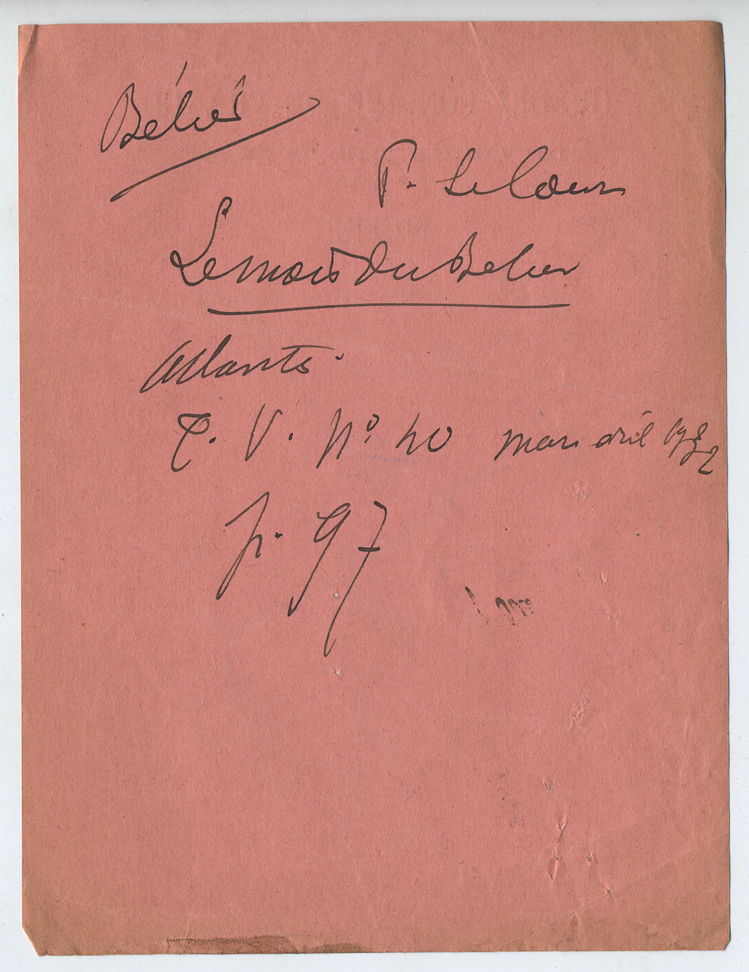 Bélier
P. Le Cour
Le mois du Belier
Atlantis.
T. V. No. 40 mars avril 1932
p. 97